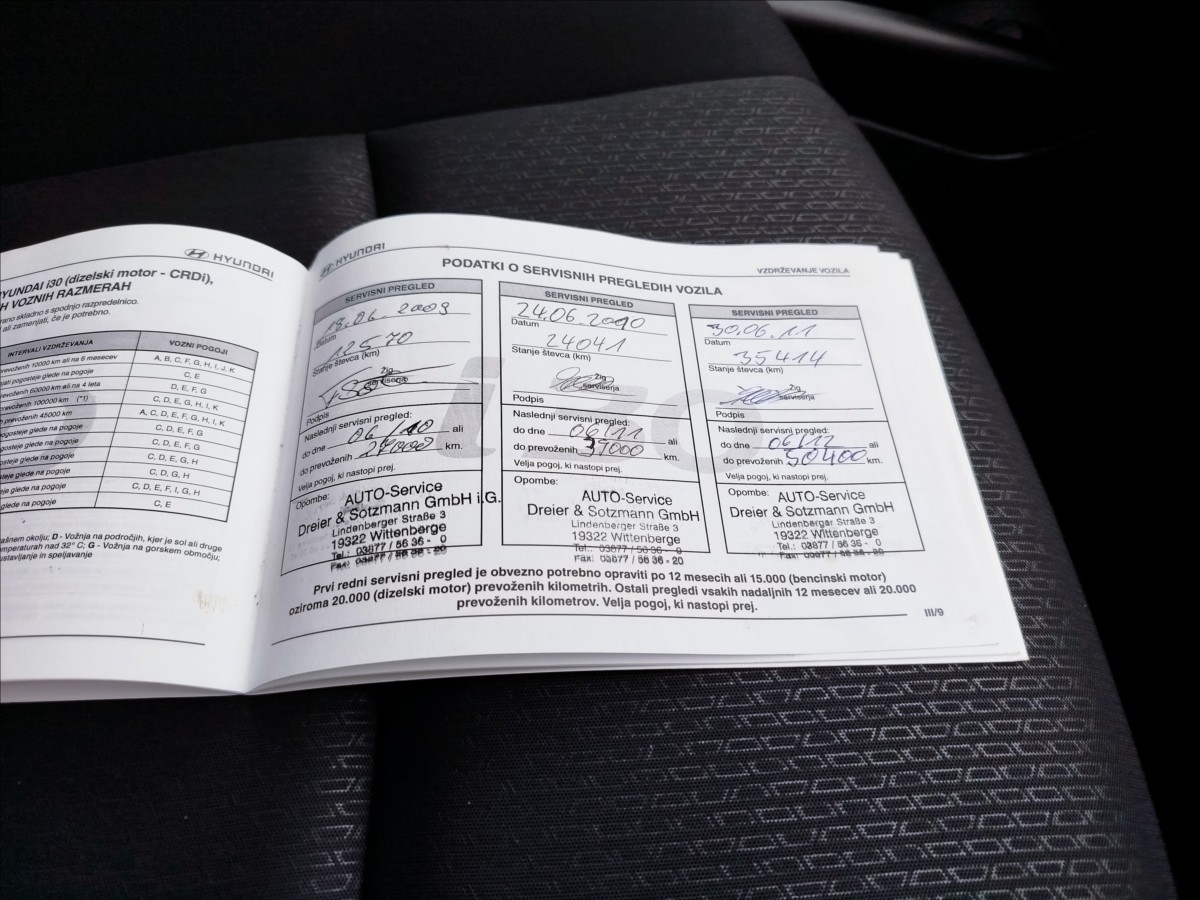 HYUNDAI
HYUNDAI i30 (dizelski motor - CRDi),
H VOZNIH RAZMERAH
rano skladno s spodnjo razpredelnico.
ali zamenjati, če je potrebno.
INTERVALI VZDRŽEVANJA
VOZNI POGOJI
prevoženih 10000 km ali na 6 mesecev
A, B, C, F, G, H, I, J, K
pogosteje glede na pogoje
C, E
prevoženih 60000 km ali na 4 leta
D, E, F, G
prevoženih 100000 km (*1)
C, D, E, G, H, I, K
prevoženih 45000 km
A, C, D, E, F, G, H, I, K
pogosteje glede na pogoje
C, D, E, F, G
pogosteje glede na pogoje
C, D, E, F, G
glede na pogoje
C, D, E, G, H
glede na pogoje
C, D, G, H
glede na pogoje
C, D, E, F, I, G, H
glede na pogoje
C, E
rašnem okolju; D - Vožnja na področjih, kjer je sol ali druge
mperaturah nad 32° C; G - Vožnja na gorskem območju;
ustavljanje in speljavanje
HYUNDAI
VZDRŽEVANJE VOZILA
PODATKI O SERVISNIH PREGLEDIH VOZILA
SERVISNI PREGLED
18.06.2009
Datum
12570
Stanje števca (km)
Žig
servisenja
Podpis
Naslednji servisni pregled:
do dne 06/10 ali
do prevoženih 27000 km.
Velja pogoj, ki nastopi prej.
Opombe:
AUTO-Service
Dreier & Sotzmann GmbH i.G.
Lindenberger Straße 3
19322 Wittenberge
Tel.: 03877 / 56 36 - 0
Fax: 03877 / 56 36 - 20
SERVISNI PREGLED
24.06.2010
Datum
24041
Stanje števca (km)
Žig
servisenja
Podpis
Naslednji servisni pregled:
do dne 06/11 ali
do prevoženih 39000 km.
Velja pogoj, ki nastopi prej.
Opombe:
AUTO-Service
Dreier & Sotzmann GmbH
Lindenberger Straße 3
19322 Wittenberge
Tel.: 03877 / 56 36 - 0
Fax: 03877 / 56 36 - 20
SERVISNI PREGLED
30.06.11
Datum
35414
Stanje števca (km)
Žig
servisenja
Podpis
Naslednji servisni pregled:
do dne 06/12 ali
do prevoženih 50400 km.
Velja pogoj, ki nastopi prej.
Opombe:
AUTO-Service
Dreier & Sotzmann GmbH
Lindenberger Straße 3
19322 Wittenberge
Tel.: 03877 / 56 36 - 0
Fax: 03877 / 56 36 - 20
Prvi redni servisni pregled je obvezno potrebno opraviti po 12 mesecih ali 15.000 (bencinski motor)
oziroma 20.000 (dizelski motor) prevoženih kilometrih. Ostali pregledi vsakih nadaljnih 12 mesecev ali 20.000
prevoženih kilometrov. Velja pogoj, ki nastopi prej.
III/9